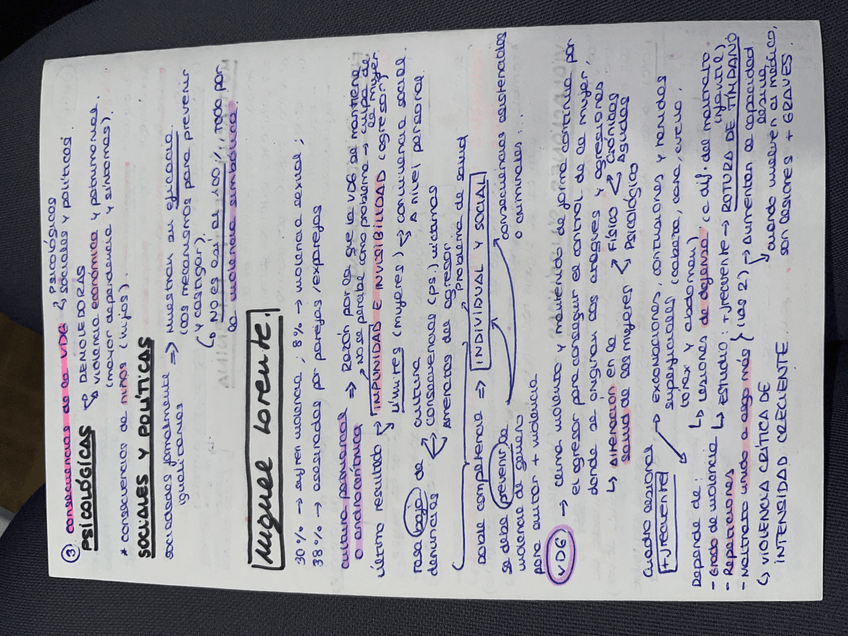 ③ consecuencias de la VDG
psicológicas
sociales y políticas.
PSICOLÓGICAS
→ DEMOLEDORAS
↳ violencia económica y patrimonial.
(mayor dependencia y síntomas).
* consecuencias de niños (hijos).
SOCIALES Y POLÍTICAS
sociedades formalmente igualitarias
⇒ Muestran su eficacia
(los mecanismos para prevenir
y castigar).
(↳ No es así al 100%, todo por
la violencia simbólica.
Miguel Lorente
30% → sufren violencia; 8% → violencia sexual;
38% → asesinatos por parejas/exparejas
cultura patriarcal
o androcéntrica
⇒ Razón por la que la VDG se mantiene
↳ No se percibe como problema → culpa de
la mujer
último resultado → IMPUNIDAD E INVISIBILIDAD (agresor)
↳ límites (mujeres) → convivencia social.
↳ A nivel personal
tasa baja de
denuncias
cultura
consecuencias (ps) víctimas
Amenazas del agresor
Problema de salud
Doble competencia ⇒ INDIVIDUAL Y SOCIAL
se debe prevenir la
violencia de género
para evitar + violencia
consecuencias asistenciales
o criminales.
VDG → como violento y mantenido de forma continua por
el agresor para conseguir el control de la mujer,
donde se originan los ataques y agresiones
↳ Alteración en la
salud de las mujeres
Físico
Crónicas
Agudas
Psicológico
Cuadro lesional
+ frecuente
→ excoriaciones, contusiones y heridas
superficiales (cabeza, cara, cuello,
tórax y abdomen)
Depende de:
↳ Lesiones de defensa (a dif. del maltrato
infantil)
- Grado de violencia
↳ Estudio: + frecuente → ROTURA DE TÍMPANO
- Repeticiones
- Maltrato unido a algo más } (las 2) → Aumentan la capacidad
lesiva
↳ VIOLENCIA CRÍTICA DE
INTENSIDAD CRECIENTE
↳ cuando vuelven al médico,
son lesiones + GRAVES.